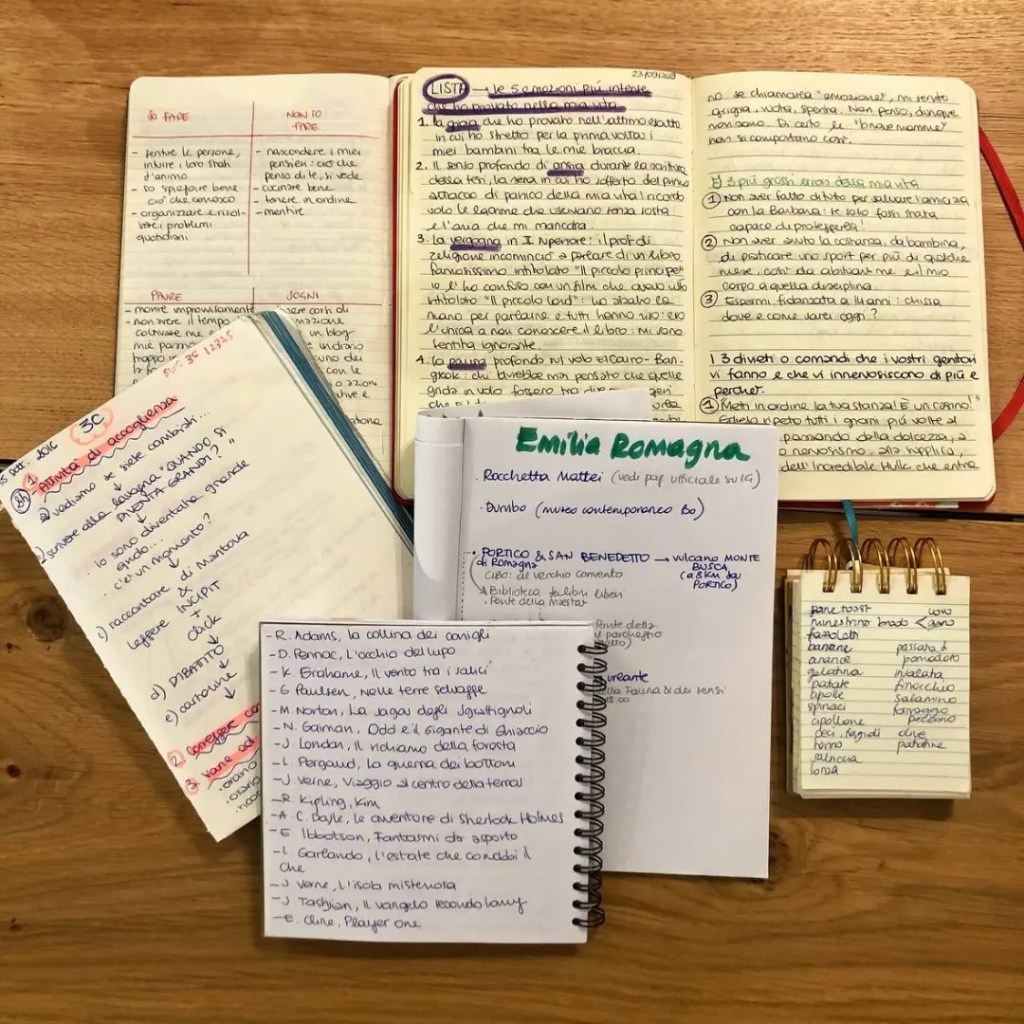 SO FARE
NON SO
FARE
- sentire le persone,
intuire i loro stati
d'animo
- so spiegare bene
ciò che conosco
- organizzare e risol-
vere i problemi
quotidiani
- nascondere i miei
pensieri: ciò che
penso di te, si vede
- cucinare bene
- tenere in ordine
- mentire
PAURE
SOGNI
- morire improvvisamente
- non avere il tempo
coltivare me
mie passio
troppo in
un blog
LISTA → le 5 emozioni più intense
che ho provato nella mia vita
1. la gioia che ho provato nell'attimo esatto
in cui ho stretto per la prima volta i
miei bambini tra le mie braccia.
2. Il senso profondo di ansia durante la scrittura
della tesi, la sera in cui ho sofferto del primo
attacco di panico della mia vita: ricordo
solo le lacrime che uscivano senza sosta
e l'aria che mi mancava.
3. La vergogna in I superiore: il prof. di
religione incominciò a parlare di un libro
famosissimo intitolato "Il piccolo principe"
io l'ho confuso con un film che avevo visto
intitolato "Il piccolo Lord": ho alzato la
mano per parlarne e tutti hanno riso: ero
l'unica a non conoscere il libro: mi sono
sentita ignorante.
4. La paura profonda sul volo El Cairo-Ban-
gkok: chi avrebbe mai pensato che quelle
grida in volo fossero tra due
no se chiamarla "emozione", mi sento
grigia, vuota, spenta. Non penso, dunque
non sono. Di certo le "brave mamme"
non si comportano così.
3 più grossi errori della mia vita
① Non aver fatto di tutto per salvare l'amicizia
con la Barbara: se solo fossi stata
capace di proteggerla!
② Non aver avuto la costanza, da bambina,
di praticare uno sport per più di qualche
mese, così da abituar me e il mio
corpo a quella disciplina.
③ Essermi fidanzata a 14 anni: chissà
dove e come sarei oggi?
I 3 divieti o comandi che i vostri genitori
vi fanno e che vi innervosiscono di più e
perché.
① "Metti in ordine la tua stanza! È un casino!"
ripeto tutti i giorni più volte al
passando dalla dolcezza, a
nervosismo, alla supplica,
dell'Incredibile Hulk che entra
15 sett. 2016
3C
Attività di accoglienza
2h
1.
a) vediamo se siete cambiati...
↓
scrivere alla lavagna "QUANDO SI
DIVENTA GRANDI?"
↓
. Io sono diventata grande
quando...
. c'è un momento?
↓
c) raccontare di Mantova
&
leggere INCIPIT
+
click
↓
d) DIBATTITO
↓
e) cartoline
↓
2. Correggere co
3. Varie ed
. orario
. diario
Emilia Romagna
. Rocchetta Mattei (vedi pag ufficiale su IG)
. Dumbo (museo contemporaneo Bo)
. PORTICO & SAN BENEDETTO → vulcano MONTE
di Romagna
BUSCA
(a 8 KM da
PORTICO)
CIBO: al vecchio convento
Biblioteca dei libri liberi
. Ponte della Maestà
Ponte della
il parchetto
della Fauna & dei sensi
- R. Adams, La collina dei conigli
- D. Pennac, L'occhio del lupo
- K. Grahame, Il vento tra i salici
- G. Paulsen, Nelle terre selvagge
- M. Norton, La saga degli Sgraffignoli
- N. Gaiman, Odd e il gigante di Ghiaccio
- J. London, Il richiamo della foresta
- L. Pergaud, La guerra dei bottoni
- J. Verne, Viaggio al centro della terra
- R. Kipling, Kim
- A. C. Doyle, Le avventure di Sherlock Holmes
- E. Ibbotson, Fantasmi da asporto
- L. Garlando, L'estate che conobbi il
Che
- J. Verne, L'isola misteriosa
- J. Tashjian, Il vangelo secondo Larry
- E. Cline, Player one
pane toast
minestrina brodo
fazzoletti
banane
arance
gelatina
patate
cipolle
spinaci
cipollone
ceci, fagioli
tonno
salsiccia
lonza
passata di
pomodoro
insalata
finocchio
salamino
formaggio
pecorino
olive
patatine